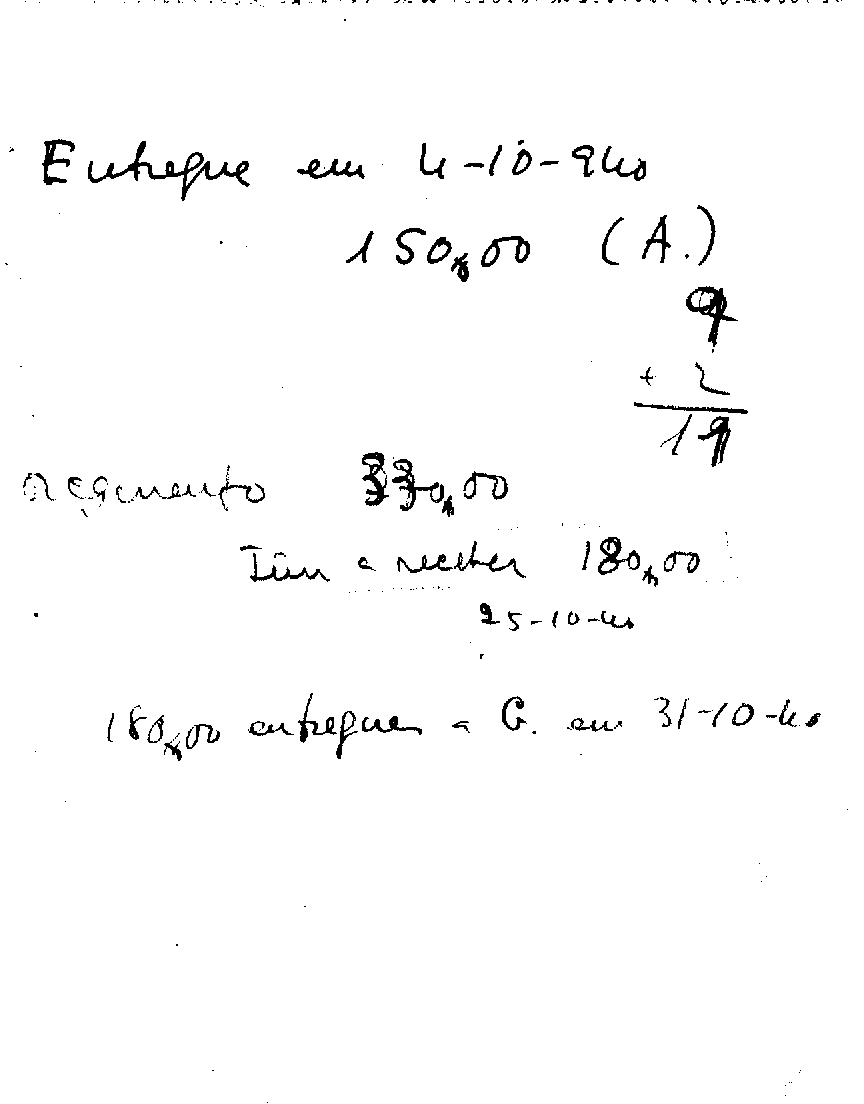 Entregue em 4-10-940
150$00 (A.)
9
+ 2
11
orçamento 330$00
Têm a receber 180$00
25-10-40
180$00 entregues a G. em 31-10-40